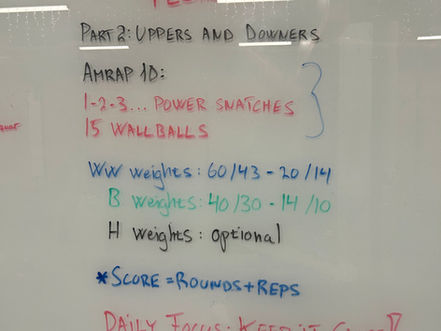 PART 2: UPPERS AND DOWNERS
AMRAP 10:
1-2-3... POWER SNATCHES
15 WALLBALLS
WW weights: 60/43 - 20/14
B weights: 40/30 - 14/10
H weights: optional
*SCORE = ROUNDS + REPS
DAILY FOCUS: KEEP IT